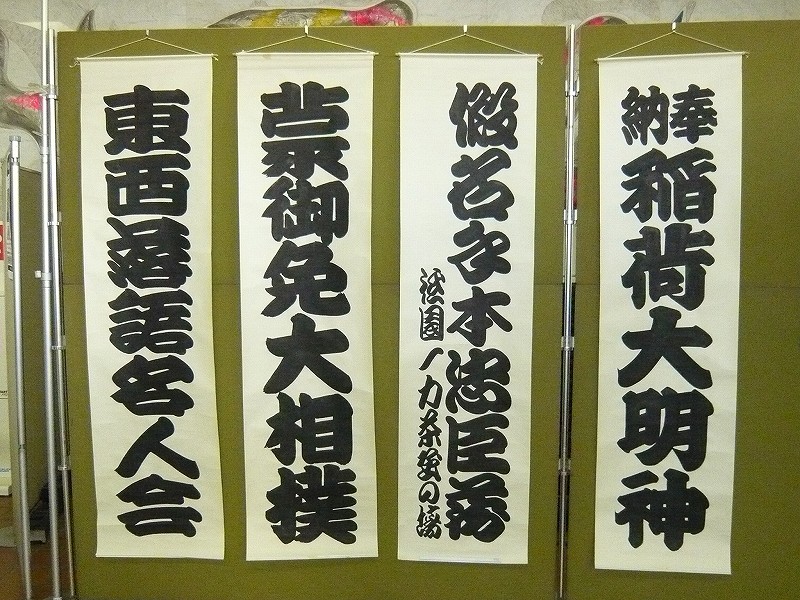 奉納
稲荷大明神
假名手本忠臣蔵
祇園一力茶屋の場
蒙御免大相撲
東西落語名人会